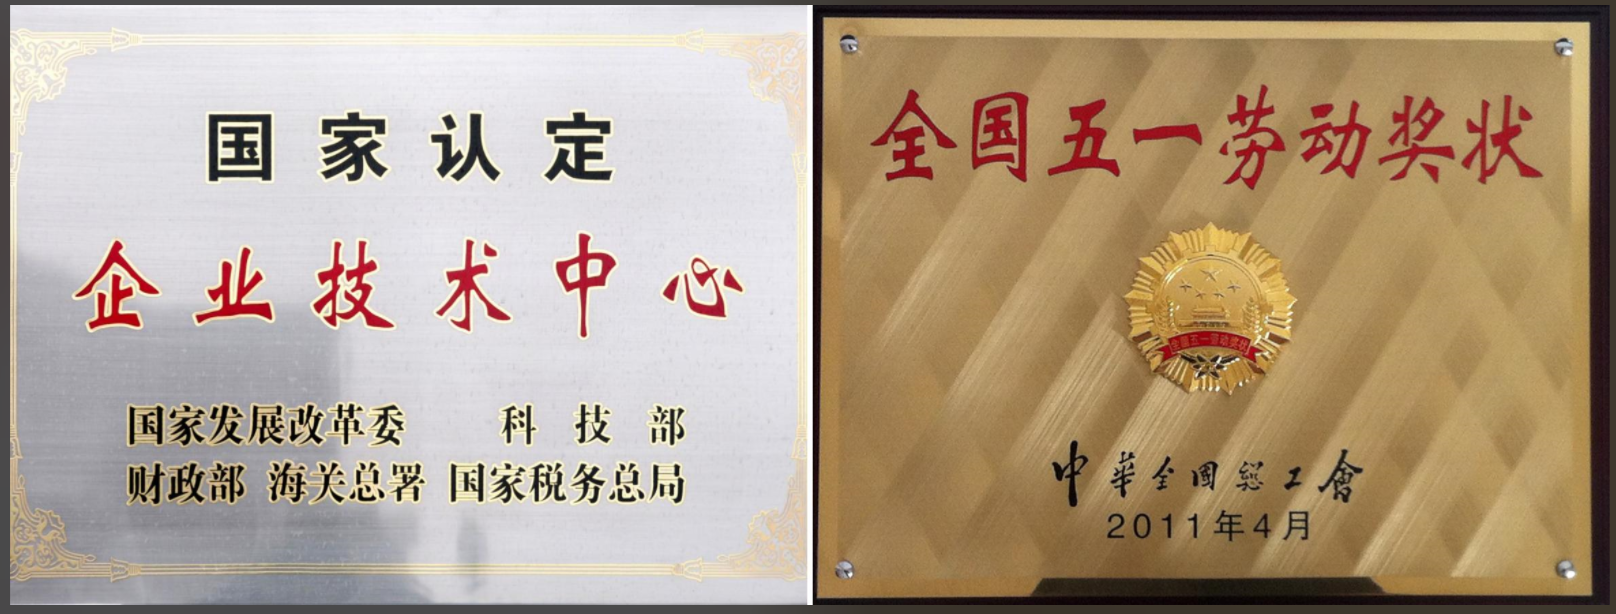 国家认定
企业技术中心
国家发展改革委 科技部
财政部 海关总署 国家税务总局
全国五一劳动奖状
全国五一劳动奖状
中華全國總工會
2011年4月